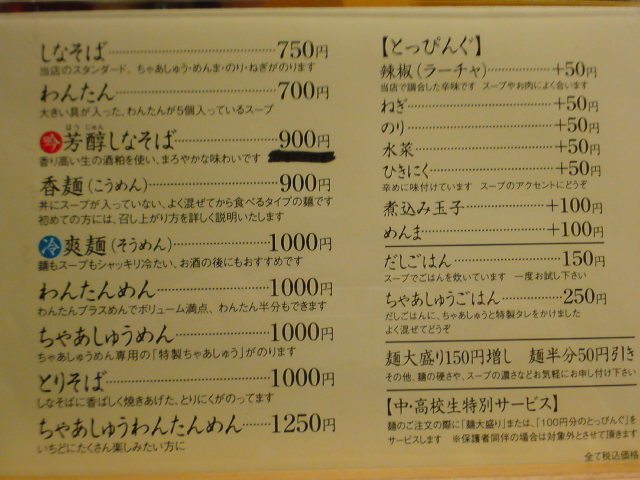 しなそば 750円
当店のスタンダード、ちゃあしゅう・めんま・のり・ねぎがのります
わんたん 700円
大きい具が入った、わんたんが5個入っているスープ
吟 芳醇しなそば 900円
ほう じゅん
香り高い生の酒粕を使い、まろやかな味わいです
香麺(こうめん) 900円
丼にスープが入っていない、よく混ぜてから食べるタイプの麺です
初めての方には、召し上がり方を詳しく説明いたします
冷 爽麺(そうめん) 1000円
麺もスープもシャッキリ冷たい、お酒の後にもおすすめです
わんたんめん 1000円
わんたんプラスめんでボリューム満点、わんたん半分もできます
ちゃあしゅうめん 1000円
ちゃあしゅうめん専用の「特製ちゃあしゅう」がのります
とりそば 1000円
しなそばに香ばしく焼きあげた、とりにくがのってます
ちゃあしゅうわんたんめん 1250円
いちどにたくさん楽しみたい方に
【とっぴんぐ】
辣椒(ラーチャ) +50円
当店で調合した辛味です スープやお肉によく合います
ねぎ +50円
のり +50円
水菜 +50円
ひきにく +50円
辛めに味付けています スープのアクセントにどうぞ
煮込み玉子 +100円
めんま +100円
だしごはん 150円
スープでごはんを炊いています 一度お試し下さい
ちゃあしゅうごはん 250円
だしごはんに、ちゃあしゅうと特製タレをかけました
よく混ぜてどうぞ
麺大盛り150円増し 麺半分50円引き
その他、麺の硬さや、スープの濃さなどお気軽にお申し付け下さい
【中・高校生特別サービス】
麺のご注文の際に「麺大盛り」または、「100円分のとっぴんぐ」を
サービスします ※保護者同伴の場合は対象外とさせて頂きます
全て税込価格